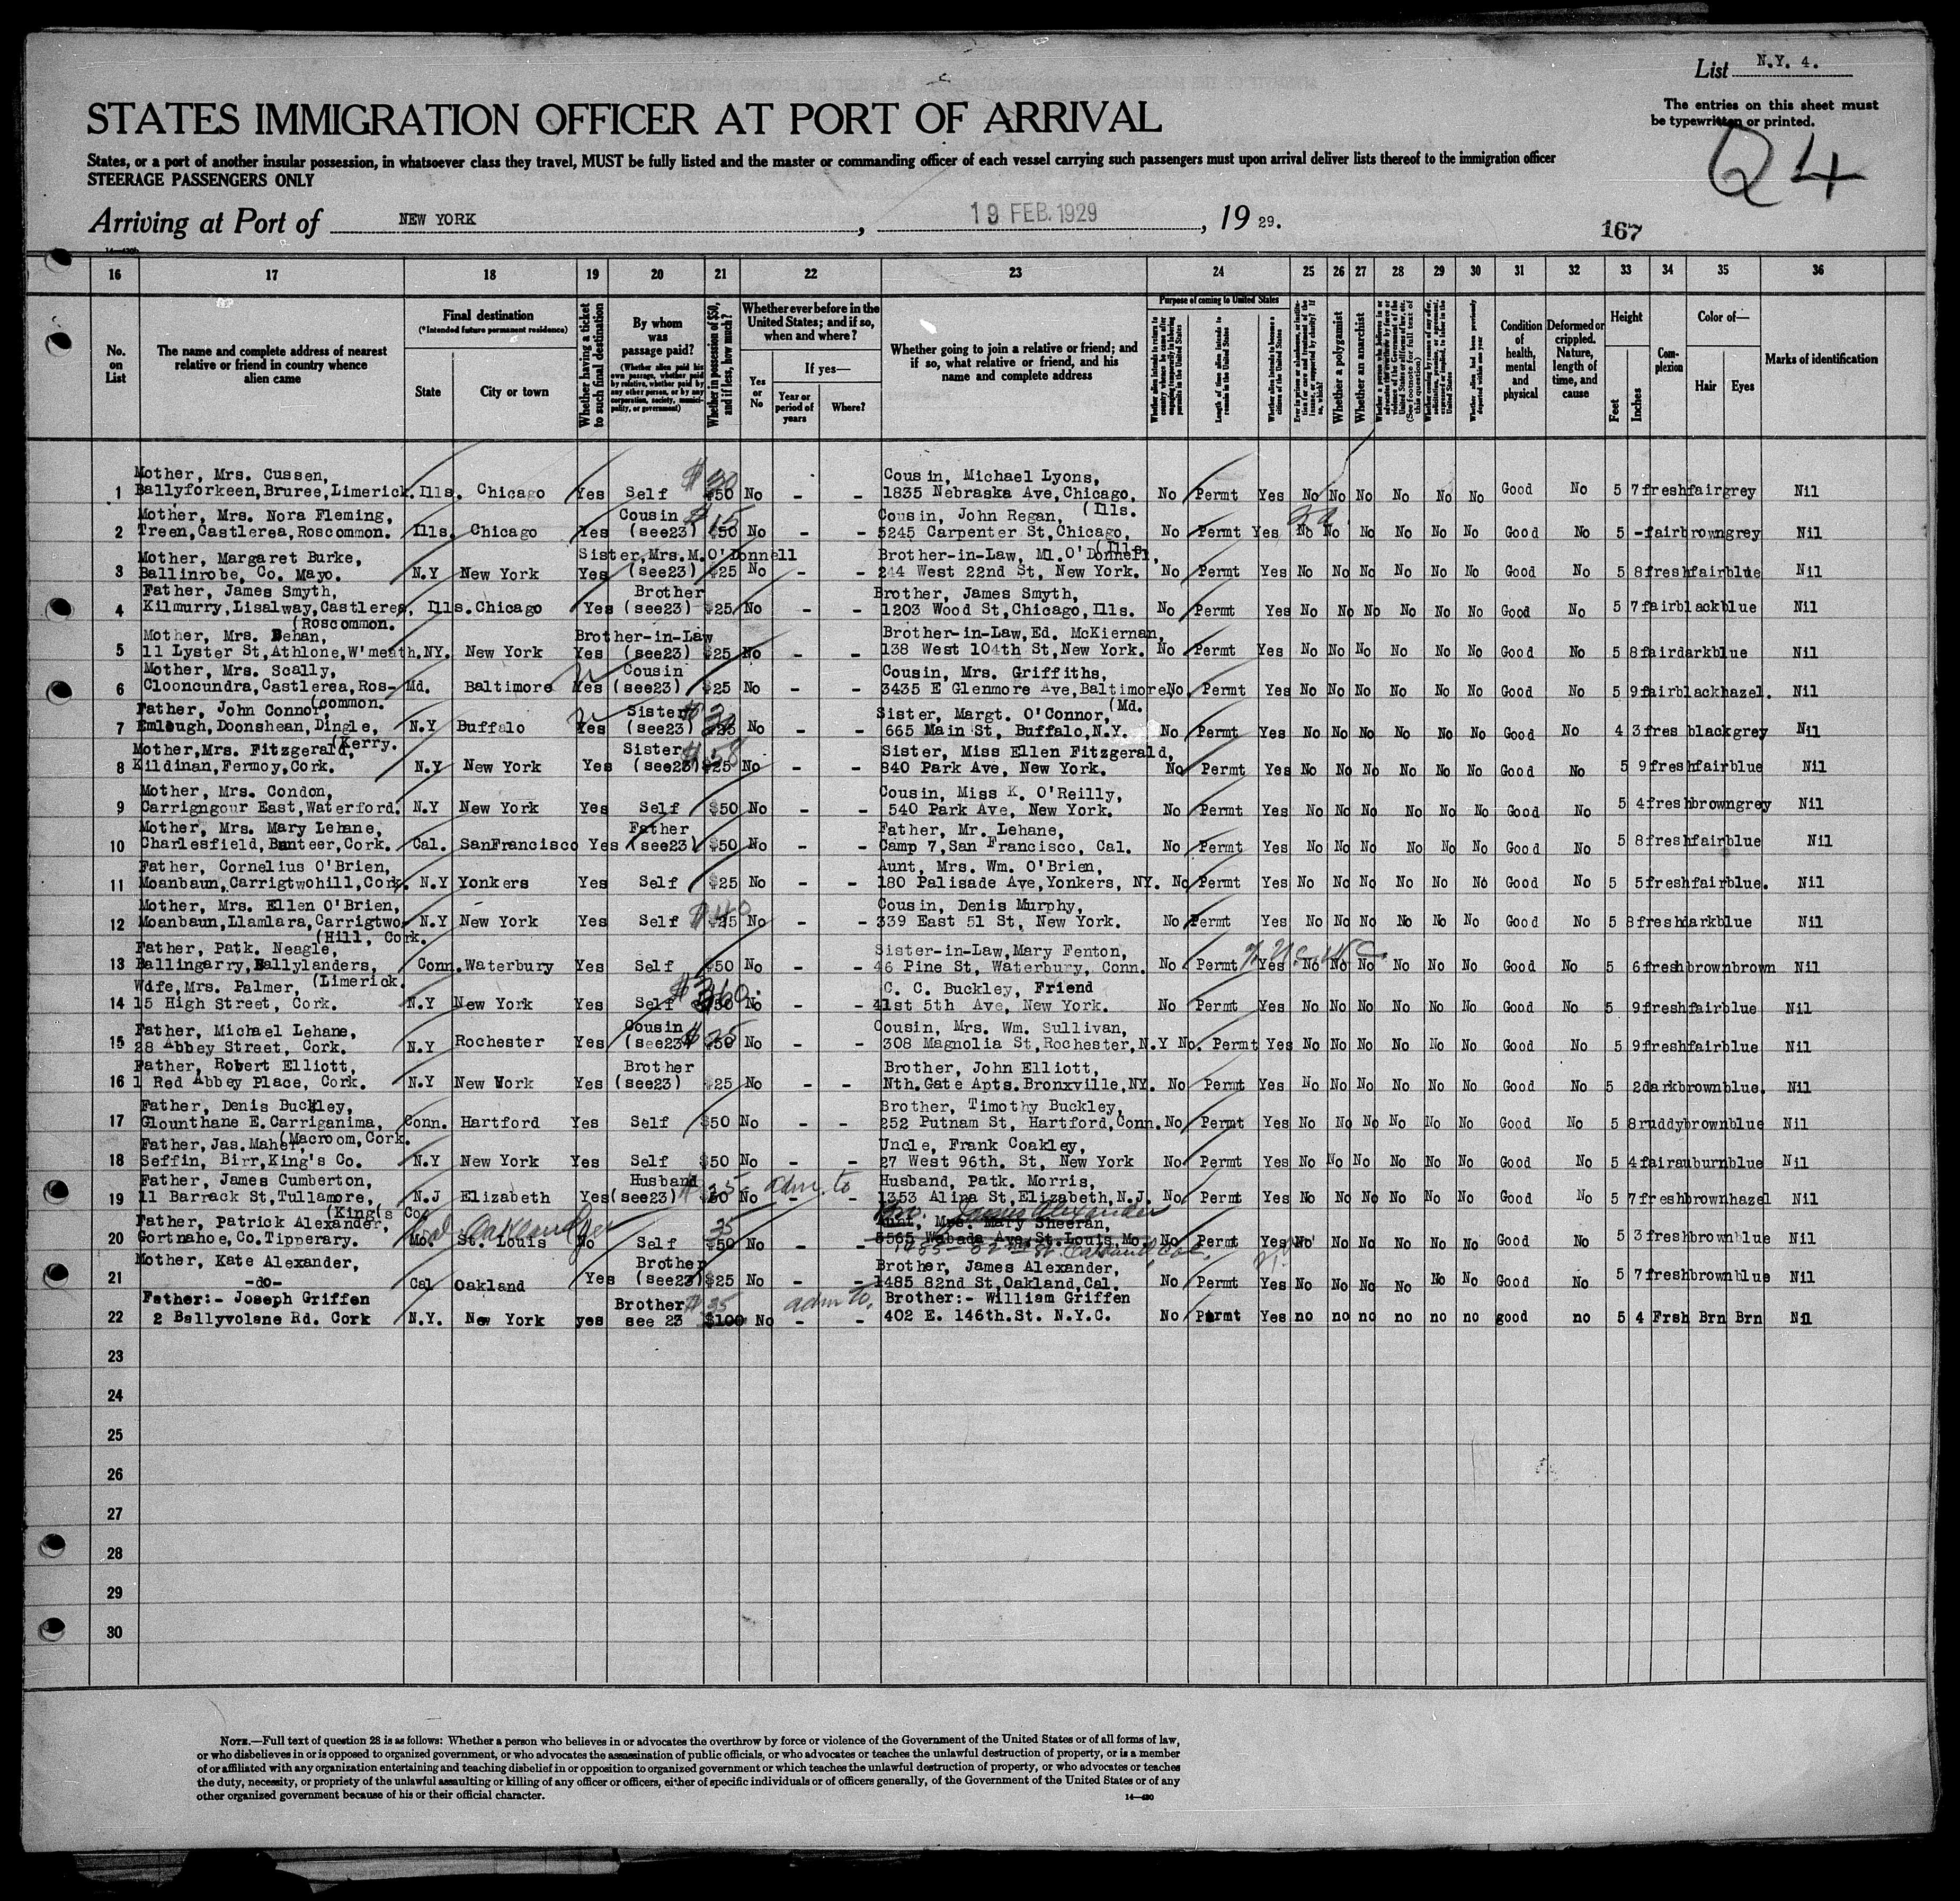 List N.Y. 4.
The entries on this sheet must
be typewritten or printed.
Q4
STATES IMMIGRATION OFFICER AT PORT OF ARRIVAL
States, or a port of another insular possession, in whatsoever class they travel, MUST be fully listed and the master or commanding officer of each vessel carrying such passengers must upon arrival deliver lists thereof to the immigration officer
STEERAGE PASSENGERS ONLY
Arriving at Port of NEW YORK, 19 FEB. 1929, 19 29.
167
16 17 18 19 20 21 22 23 24 25 26 27 28 29 30 31 32 33 34 35 36
No. on List
The name and complete address of nearest relative or friend in country whence alien came
Final destination
(*Intended future permanent residence)
State City or town
Whether having a ticket to such final destination
By whom was passage paid?
(Whether alien paid his own passage, whether paid by relative, whether paid by any other person, or by any corporation, society, municipality, or government)
Whether in possession of $50, and if less, how much?
Whether ever before in the United States; and if so, when and where?
Yes or No
If yes—
Year or period of years Where?
Whether going to join a relative or friend; and if so, what relative or friend, and his name and complete address
Purpose of coming to United States
Length of time alien intends to remain in the United States
Whether alien intends to become a citizen of the United States
Whether a polygamist
Whether an anarchist
Condition of health, mental and physical
Deformed or crippled. Nature, length of time, and cause
Height
Feet Inches
Complexion
Color of—
Hair Eyes
Marks of identification
Mother, Mrs. Cussen, $30 Cousin, Michael Lyons,
1 Ballyforkeen,Bruree,Limerick. Ills. Chicago Yes Self $50 No - - 1835 Nebraska Ave,Chicago, No Permt Yes No No No No No No Good No 5 7 fresh fair grey Nil
Mother, Mrs. Nora Fleming, Cousin $15 Cousin, John Regan, (Ills.
2 Treen,Castlerea,Roscommon. Ills. Chicago Yes (see23) $50 No - - 5245 Carpenter St,Chicago, No Permt Yes No No No No No No Good No 5 - fair brown grey Nil
Mother, Margaret Burke, Sister,Mrs.M.O'Donnell Brother-in-Law, Ml.O'Donnell, (Ills.
3 Ballinrobe, Co. Mayo. N.Y New York Yes (see23) $25 No - - 244 West 22nd St, New York. No Permt Yes No No No No No No Good No 5 8 fresh fair blue Nil
Father, James Smyth, Brother Brother, James Smyth,
4 Kilmurry,Lisalway,Castlerea, Ills. Chicago Yes (see23) $25 No - - 1203 Wood St,Chicago,Ills. No Permt Yes No No No No No No Good No 5 7 fair black blue Nil
(Roscommon.
Mother, Mrs. Dehan, Brother-in-Law Brother-in-Law,Ed. McKiernan,
5 11 Lyster St,Athlone,W'meath. NY. New York Yes (see23) $25 No - - 138 West 104th St,New York. No Permt Yes No No No No No No Good No 5 8 fair dark blue Nil
Mother, Mrs. Scally, Cousin Cousin, Mrs. Griffiths,
6 Clooncundra,Castlerea,Ros- Md. Baltimore Yes (see23) $25 No - - 3435 E Glenmore Ave,Baltimore, No Permt Yes No No No No No No Good No 5 9 fair black hazel. Nil
(common. (Md.
Father, John Connor, Sister Sister, Margt. O'Connor,
7 Emlough,Doonshean,Dingle, N.Y Buffalo Yes (see23) $25 No - - 665 Main St, Buffalo,N.Y. No Permt Yes No No No No No No Good No 4 3 fres black grey Nil
(Kerry.
Mother,Mrs. Fitzgerald, Sister Sister, Miss Ellen Fitzgerald,
8 Kildinan,Fermoy,Cork. N.Y New York Yes (see23) $25 No - - 840 Park Ave, New York. No Permt Yes No No No No No No Good No 5 9 fresh fair blue Nil
Mother, Mrs. Condon, Cousin, Miss K. O'Reilly,
9 Carrigngour East,Waterford. N.Y New York Yes Self $50 No - - 540 Park Ave, New York. No Permt Yes No No No No No No Good No 5 4 fresh brown grey Nil
Mother, Mrs. Mary Lehane, Father Father, Mr. Lehane,
10 Charlesfield,Banteer,Cork. Cal. SanFrancisco Yes (see23) $50 No - - Camp 7,San Francisco, Cal. No Permt Yes No No No No No No Good No 5 8 fresh fair blue Nil
Father, Cornelius O'Brien, Aunt, Mrs. Wm. O'Brien,
11 Moanbaun,Carrigtwohill,Cork. N.Y Yonkers Yes Self $25 No - - 180 Palisade Ave,Yonkers, NY. No Permt Yes No No No No No No Good No 5 5 fresh fair blue. Nil
Mother, Mrs. Ellen O'Brien, $40 Cousin, Denis Murphy,
12 Moanbaun,Llamlara,Carrigtwo- N.Y New York Yes Self $25 No - - 339 East 51 St, New York. No Permt Yes No No No No No No Good No 5 8 fresh dark blue Nil
(Hill, Cork.
Father, Patk. Neagle, Sister-in-Law,Mary Fenton,
13 Ballingarry,Ballylanders, Conn. Waterbury Yes Self $50 No - - 46 Pine St, Waterbury, Conn. No Permt Yes No No No No No No Good No 5 6 fresh brown brown Nil
(Limerick.
Wife,Mrs. Palmer, C. C. Buckley, Friend
14 15 High Street, Cork. N.Y New York Yes Self $50 No - - 41st 5th Ave, New York. No Permt Yes No No No No No No Good No 5 9 fresh fair blue Nil
Father, Michael Lehane, Cousin $25 Cousin, Mrs. Wm. Sullivan,
15 28 Abbey Street, Cork. N.Y Rochester Yes (see23) $50 No - - 308 Magnolia St,Rochester,N.Y No. Permt Yes No No No No No No Good No 5 9 fresh fair blue Nil
Father, Robert Elliott, Brother Brother, John Elliott,
16 1 Red Abbey Place, Cork. N.Y New York Yes (see23) $25 No - - Nth.Gate Apts.Bronxville,NY. No Permt Yes No No No No No No Good No 5 2 dark brown blue. Nil
Father, Denis Buckley, Brother, Timothy Buckley,
17 Glounthane E.Carriganima, Conn. Hartford Yes Self $50 No - - 252 Putnam St, Hartford,Conn. No Permt Yes No No No No No No Good No 5 8 ruddy brown blue Nil
(Macroom,Cork.
Father,Jas. Maher, Uncle, Frank Coakley,
18 Seffin, Birr,King's Co. N.Y New York Yes Self $50 No - - 27 West 96th. St, New York No Permt Yes No No No No No No Good No 5 4 fair auburn blue Nil
Father, James Cumberton, Husband adm. to Husband, Patk. Morris,
19 11 Barrack St,Tullamore, N.J Elizabeth Yes (see23) $50 No - - 1353 Alina St,Elizabeth,N.J. No Permt Yes No No No No No No Good No 5 7 fresh brown hazel Nil
(King(s Co. Bro. James Alexander
Father, Patrick Alexander, Cal. Oakland yes 35 Aunt, Mrs. Mary Sheeran,
20 Gortnahoe,Co.Tipperary. Mo. St. Louis No Self $50 No - - 5565 Wabada Ave,St.Louis,Mo. No Permt Yes No No No No No No Good No 5 3 fresh brown blue Nil
1485 - 82nd St. Oakland Cal.
Mother, Kate Alexander, Brother Brother, James Alexander,
21 -do- Cal Oakland Yes (see23) $25 No - - 1485 82nd St,Oakland,Cal. No Permt Yes No No No No No No Good No 5 7 fresh brown blue Nil
Father:- Joseph Griffen Brother $35 adm to. Brother:- William Griffen
22 2 Ballyvolane Rd. Cork N.Y. New York yes see 23 $100 No - - 402 E. 146th.St. N.Y.C. No Permt Yes no no no no no no good no 5 4 Frsh Brn Brn Nil
23
24
25
26
27
28
29
30
NOTE.—Full text of question 28 is as follows: Whether a person who believes in or advocates the overthrow by force or violence of the Government of the United States or of all forms of law,
or who disbelieves in or is opposed to organized government, or who advocates the assassination of public officials, or who advocates or teaches the unlawful destruction of property, or is a member
of or affiliated with any organization entertaining and teaching disbelief in or opposition to organized government or which teaches the unlawful destruction of property, or who advocates or teaches
the duty, necessity, or propriety of the unlawful assaulting or killing of any officer or officers, either of specific individuals or of officers generally, of the Government of the United States or of any
other organized government because of his or their official character.
14—430